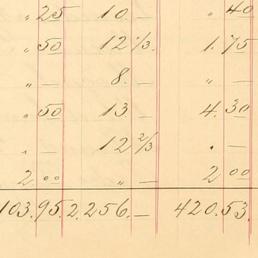 " 25 10. — " 40
" 50 12 1/3. 1. 75
" — 8. — " —
" 50 13 — 4. 30
" — 12 2/3 . —
2. 00 " — 2 00
103. 95. 2. 256. — 420. 53.